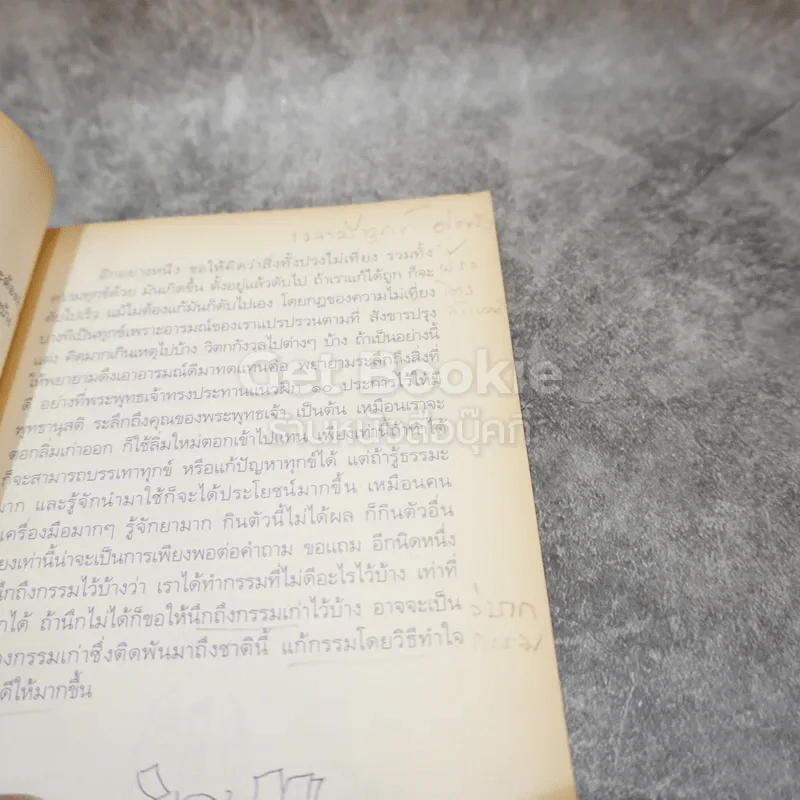 อีกอย่างหนึ่ง ขอให้คิดว่าสิ่งทั้งปวงไม่เที่ยง รวมทั้ง
ความทุกข์ด้วย มันเกิดขึ้น ตั้งอยู่แล้วดับไป ถ้าเราแก้ได้ถูก ก็จะ
ดับไปเร็ว แม้ไม่ต้องแก้มันก็ดับไปเอง โดยกฎของความไม่เที่ยง
บางทีเป็นทุกข์เพราะอารมณ์ของเราแปรปรวนตามที่ สังขารปรุง
แต่ง คิดมากเกินเหตุไปบ้าง วิตกกังวลไปต่างๆ บ้าง ถ้าเป็นอย่างนี้
ให้พยายามดึงเอาอารมณ์ดีมาทดแทนคือ พยายามระลึกถึงสิ่งที่
ดี อย่างที่พระพุทธเจ้าทรงประทานแนวฝึก ๑๐ ประการไว้ให้มี
พุทธานุสติ ระลึกถึงคุณของพระพุทธเจ้า เป็นต้น เหมือนเราจะ
ตอกลิ่มเก่าออก ก็ใช้ลิ่มใหม่ตอกเข้าไปแทน เพียงเท่านี้ถ้าทำได้
ก็จะสามารถบรรเทาทุกข์ หรือแก้ปัญหาทุกข์ได้ แต่ถ้ารู้ธรรมะ
มาก และรู้จักนำมาใช้ก็จะได้ประโยชน์มากขึ้น เหมือนคน
เครื่องมือมากๆ รู้จักยามาก กินตัวนี้ไม่ได้ผล ก็กินตัวอื่น
เท่านี้น่าจะเป็นการเพียงพอต่อคำถาม ขอแถม อีกนิดหนึ่ง
นึกถึงกรรมไว้บ้างว่า เราได้ทำกรรมที่ไม่ดีอะไรไว้บ้าง เท่าที่
ได้ ถ้านึกไม่ได้ก็ขอให้นึกถึงกรรมเก่าไว้บ้าง อาจจะเป็น
กรรมเก่าซึ่งติดพันมาถึงชาตินี้ แก้กรรมโดยวิธีทำใจ
ดีให้มากขึ้น
วิบาก
กรรม
Get Bookie
ร้านหนังสือบุ๊คกี้